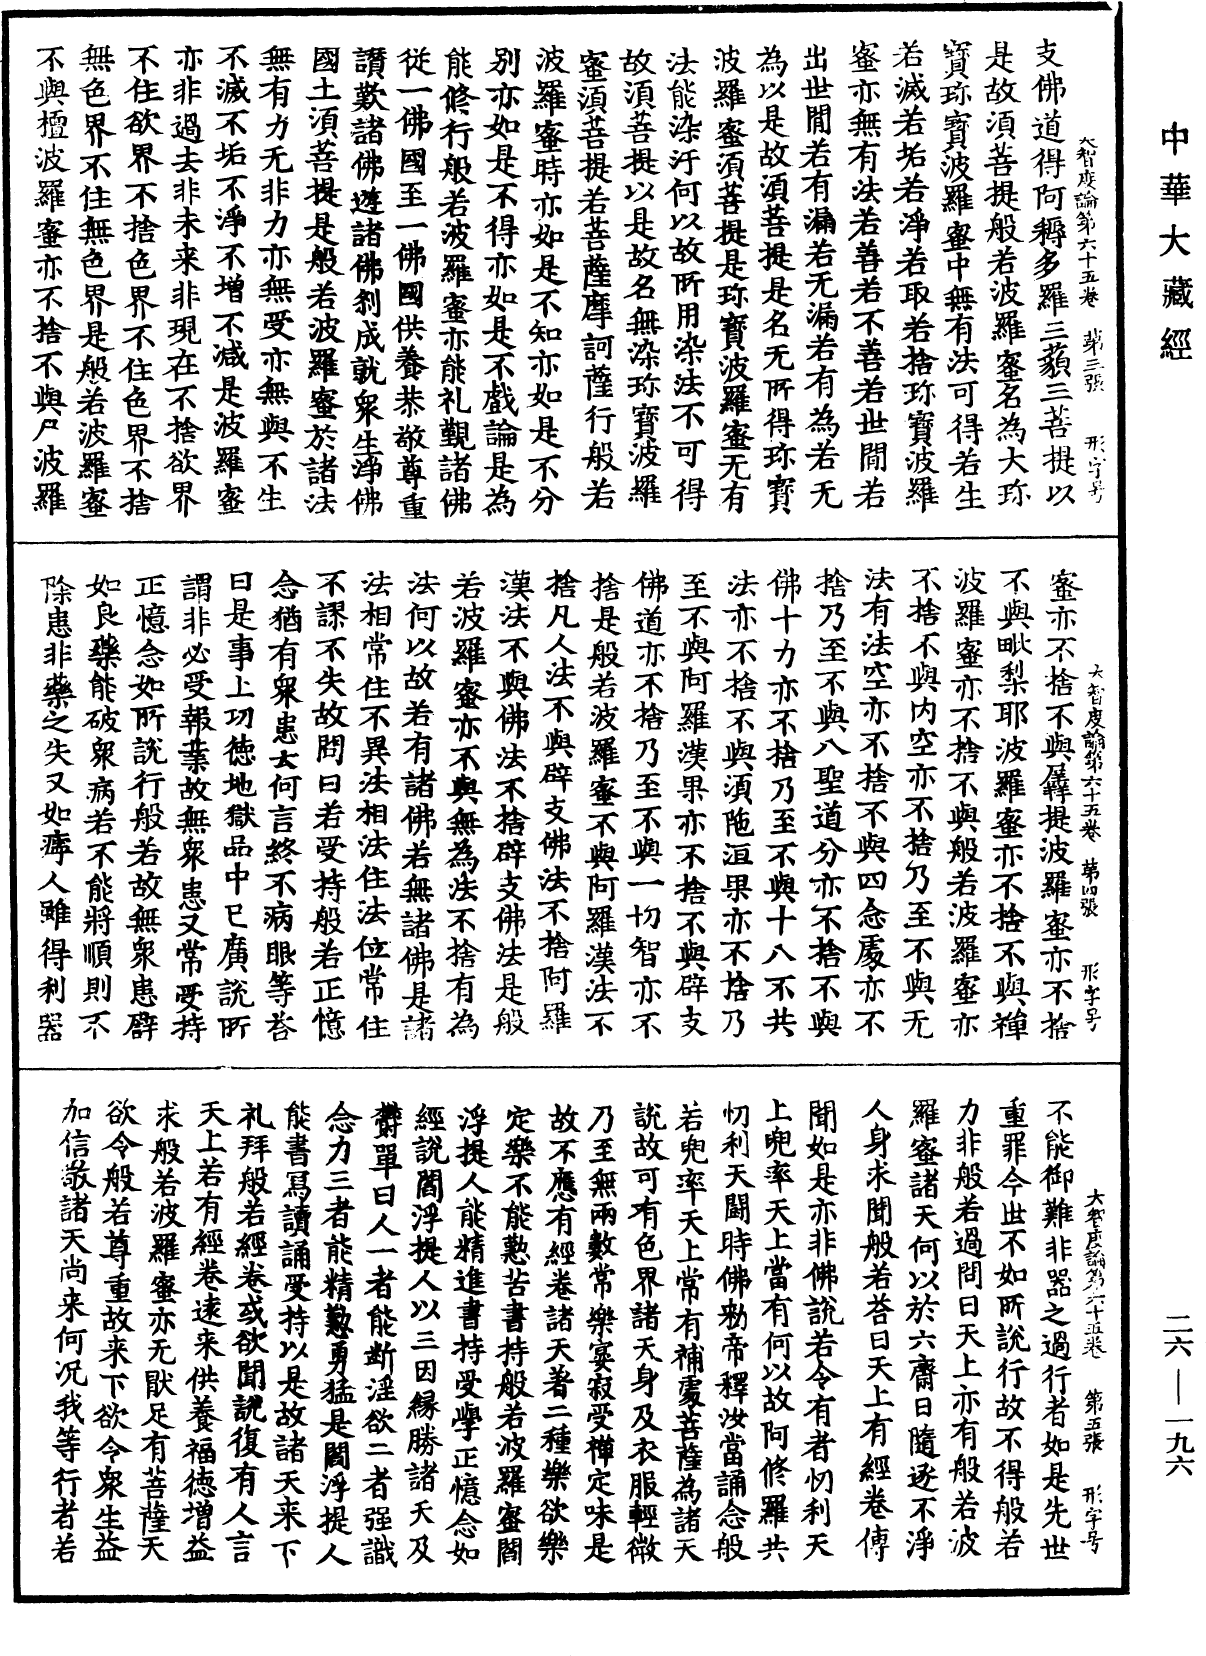 中華大藏經
支佛道得阿耨多羅三藐三菩提以
大智度論第六十五卷　苐三張　形字号
是故須菩提般若波羅蜜名為大珎
寶珎寶波羅蜜中無有法可得若生
若滅若垢若淨若取若捨珎寶波羅
蜜亦無有法若善若不善若世閒若
出世閒若有漏若无漏若有為若无
為以是故須菩提是名无所得珎寶
波羅蜜須菩提是珎寶波羅蜜无有
法能染汙何以故所用染法不可得
故須菩提以是故名無染珎寶波羅
蜜須菩提若菩薩摩訶薩行般若
波羅蜜時亦如是不知亦如是不分
別亦如是不得亦如是不戲論是為
能修行般若波羅蜜亦能礼覲諸佛
従一佛國至一佛國供養恭敬尊重
讚歎諸佛遊諸佛刹成就衆生淨佛
國土須菩提是般若波羅蜜於諸法
無有力无非力亦無受亦無與不生
不滅不垢不淨不增不減是波羅蜜
亦非過去非未来非現在不捨欲界
不住欲界不捨色界不住色界不捨
無色界不住無色界是般若波羅蜜
不與檀波羅蜜亦不捨不與尸波羅
蜜亦不捨不與羼提波羅蜜亦不捨
大智度論第六十五卷　苐四張　形字号
不與毗梨耶波羅蜜亦不捨不與禪
波羅蜜亦不捨不與般若波羅蜜亦
不捨不與内空亦不捨乃至不與无
法有法空亦不捨不與四念處亦不
捨乃至不與八聖道分亦不捨不與
佛十力亦不捨乃至不與十八不共
法亦不捨不與須陁洹果亦不捨乃
至不與阿羅漢果亦不捨不與辟支
佛道亦不捨乃至不與一切智亦不
捨是般若波羅蜜不與阿羅漢法不
捨凡人法不與辟支佛法不捨阿羅
漢法不與佛法不捨辟支佛法是般
若波羅蜜亦不與無為法不捨有為
法何以故若有諸佛若無諸佛是諸
法相常住不異法相法住法位常住
不謬不失故問曰若受持般若正憶
念猶有衆患云何言終不病眼等荅
曰是事上功徳地獄品中已廣說所
謂非必受報業故無衆患又常受持
正憶念如所說行般若故無衆患辟
如良藥能破衆病若不能將順則不
除患非藥之失又如痹人雖得利器
不能御難非器之過行者如是先世
大智度論第六十五卷　第五張　形字号
重罪今世不如所說行故不得般若
力非般若過問曰天上亦有般若波
羅蜜諸天何以於六齋日隨逐不淨
人身求聞般若荅曰天上有經卷傳
聞如是亦非佛說若令有者忉利天
上兜率天上當有何以故阿修羅共
忉利天鬪時佛勑帝釋汝當誦念般
若兜率天上常有補處菩薩為諸天
說故可有色界諸天身及衣服輕微
乃至無兩數常樂宴寂受禪定味是
故不應有經卷諸天著二種樂欲樂
定樂不能懃苦書持般若波羅蜜閻
浮提人能精進書持受學正憶念如
經說閻浮提人以三因縁勝諸天及
欝單曰人一者能断淫欲二者強識
念力三者能精懃勇猛是閻浮提人
能書寫讀誦受持以是故諸天来下
礼拜般若經卷或欲聞說復有人言
天上若有經卷逺来供養福德增益
求般若波羅蜜亦无猒足有菩薩天
欲令般若尊重故来下欲令衆生益
加信敬諸天尚来何況我等行者若
二六—一九六